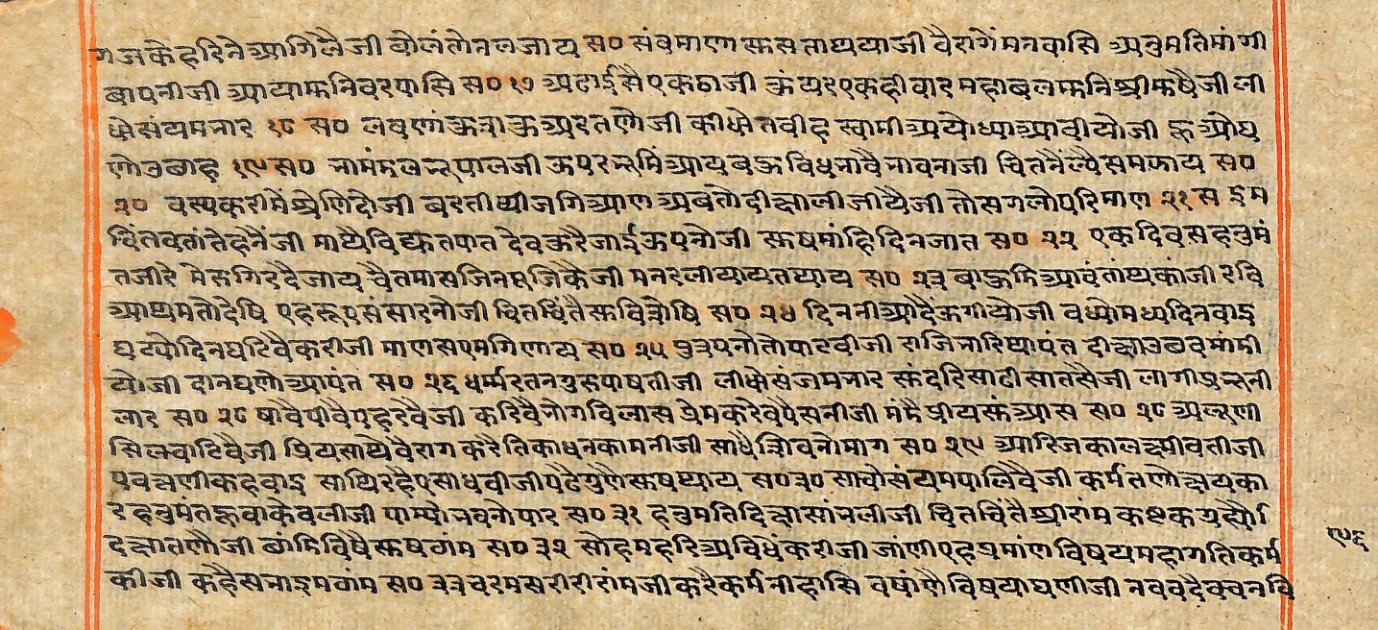 गजकेहरिनेआगिलैजी बोलंतोनलजाय स० संबमाणा ससताथयाजी वैरागेंमनवासि अनुमतिमांगी
बापनीजी आयामुनिवरपासि स० १७ अढाईसैएकठाजी कुंयरएकहीवार महाबलमुनिश्रीमुषैजी ली
धोसंयमनार १८ स० लवणांकुसाकुअरतणोजी कीधोतवीह स्वामीअयोध्याआवीयोजी हुओघ
णोउबाह १९ स० नामंमलन्रपालजी ऊपरन्रमिंआय बहुविधनावैनावनाजी चितनैंल्यैसमझाय स०
२० वस्यकरीमेंश्रेणिदोजी बरतीथीजगिआण अबतोदीक्षालीजीयैजी तोसगलोपरिमाण २१ स इम
चिंतवतांतेहनैंजी माथैविद्युतपात देवकरैजाईऊपनोजी सुषमांहिदिनजात स० २२ एकदिवसहनुमं
तजीरे मेरुगिरदैजाय चैतमासजिनपुजिकैजी मनरलीयायतथाय स० २३ बाहुमिआवंतांथकांजी रवि
आथमतोदेषि एहरूपसंसारनोजी चितचिंतैसुविशेषि स० २४ दिननीआदैंऊगीयोजी वध्योमध्यदिनवाइ
घट्योदिनघटिवैकरीजी माणसएमगिणाय स० २५ पुत्रपनोतोपाटवीजी राजिनारिथापंत दीक्षाउछवमांमी
योजी दानघणोआपंत स० २६ धर्मरतनगुरुपाषतीजी लीधोसंजमनार सुंदरिसाढीसातसैजी लागीपुन्रनी
लार स० २८ षावैपीवैपहरेवैजी करिवैनोगविलास प्रेमकरेवपैसनीजी मंमैप्रीयसुंआस स० २८ अल्रणी
सिलवाटिवैजी प्रियसाथैवैराग करैतिकाधनकामनीजी साधैशिवनोमाग स० २९ आरिजकालक्ष्मीवतीजी
पवत्रणीकहवाइ साथिरहैएसाधवीजीपढैगुणैसुषथाय स०३० साचोसंयमपालिवैजी कर्मतणोक्षयका
रहनुमंतहुवाकेवलीजी पाम्योनवनोपार स० ३१ हनुमतिदिक्षासांनलीजी चितचिंतैश्रीरांम कष्टकयस्यो
दक्षातणौजी छांमिविषैसुषठांम स० ३२ सोहमहरिअवधिंकरीजी जांणीएहप्रमांण विषयमहागतिकर्म
कीजी कहैसनाइमवांम स० ३३ चरमसरीरीरांमजी करैकर्मनीहासि वषांणैविषयाघणीजी नववदैक्वनवि
१९६